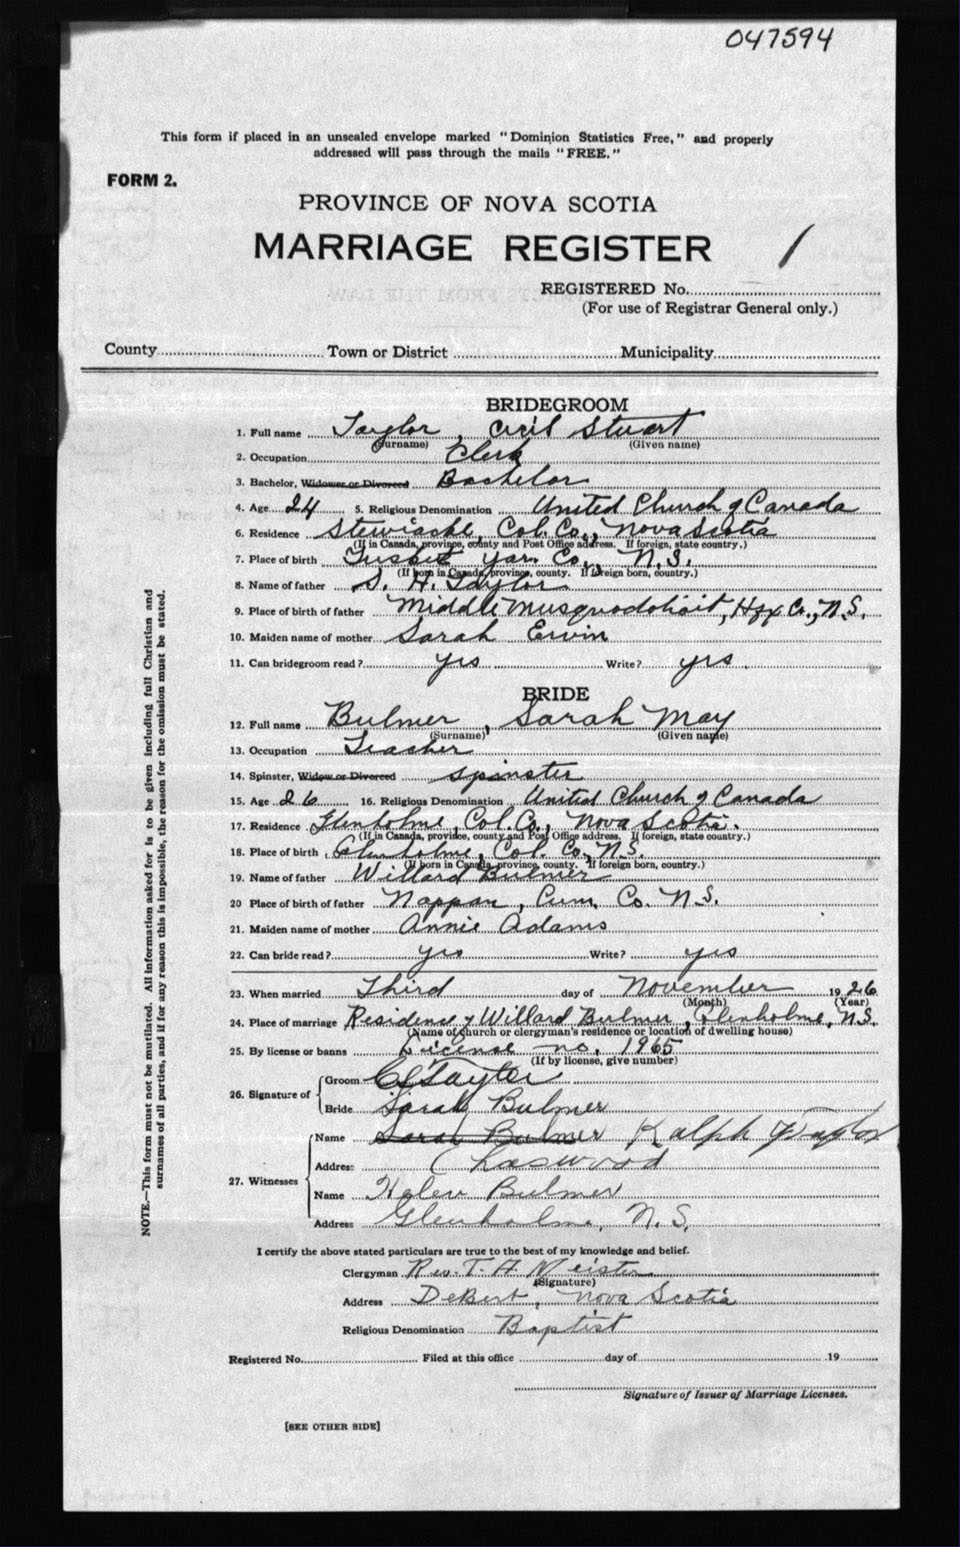 047594
This form if placed in an unsealed envelope marked "Dominion Statistics Free," and properly
addressed will pass through the mails "FREE."
FORM 2.
PROVINCE OF NOVA SCOTIA
MARRIAGE REGISTER 1
REGISTERED No.
(For use of Registrar General only.)
County Town or District Municipality
BRIDEGROOM
1. Full name Taylor, Cecil Stuart
(Surname) (Given name)
2. Occupation Clerk
3. Bachelor, Widower or Divorced Bachelor
4. Age 24 5. Religious Denomination United Church of Canada
6. Residence Stewiacke, Col. Co., Nova Scotia
(If in Canada, province, county and Post Office address. If foreign, state country.)
7. Place of birth Tusket Yar. Co., N.S.
(If born in Canada, province, county. If foreign born, country.)
8. Name of father S. H. Taylor
9. Place of birth of father Middle Musquodoboit, Hfx Co., N.S.
10. Maiden name of mother Sarah Ervin
11. Can bridegroom read? yes Write? yes.
BRIDE
12. Full name Bulmer, Sarah May
(Surname) (Given name)
13. Occupation Teacher
14. Spinster, Widow or Divorced spinster
15. Age 26 16. Religious Denomination United Church of Canada
17. Residence Glenholme, Col. Co., Nova Scotia.
(If in Canada, province, county and Post Office address. If foreign, state country.)
18. Place of birth Glenholme, Col. Co., N.S.
(If born in Canada, province, county. If foreign born, country.)
19. Name of father Willard Bulmer
20 Place of birth of father Nappan, Cum. Co. N.S.
21. Maiden name of mother Annie Adams
22. Can bride read? yes Write? yes
23. When married Third day of November 1926
(Month) (Year)
24. Place of marriage Residence of Willard Bulmer, Glenholme, N.S.
(Name of church or clergyman's residence or location of dwelling house)
25. By license or banns License no. 1965
(If by license, give number)
26. Signature of
Groom CS Taylor
Bride Sarah Bulmer
27. Witnesses
Name Sarah Bulmer Ralph Taylor
Address Chaswood
Name Helen Bulmer
Address Glenholme, N.S.
I certify the above stated particulars are true to the best of my knowledge and belief.
Clergyman Rev. T. A. Meister
(Signature)
Address DeBert, Nova Scotia
Religious Denomination Baptist
Registered No. Filed at this office day of 19
Signature of Issuer of Marriage Licenses.
[SEE OTHER SIDE]
NOTE.—This form must not be mutilated. All information asked for is to be given including full Christian and
surnames of all parties, and if for any reason this is impossible, the reason for the omission must be stated.